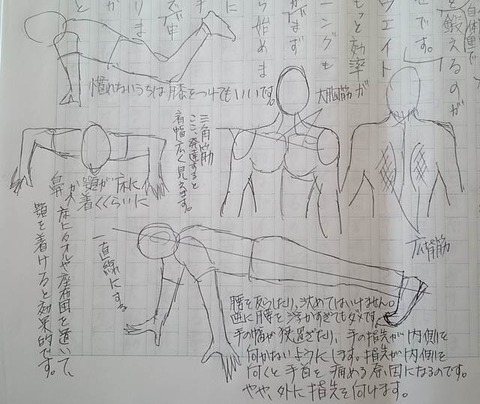 慣れないうちは膝をつけてもいいです。
大胸筋
三角筋
ここが発達すると
肩幅広く見えます。
鼻か顎が床に
着くくらいに
床にタオルや座布団を置いて、
顎を着けると効果的です。
広背筋
一直線にする。
腰を反らしたり、沈めてはいけません。
逆に腰を浮かすぎてもダメです。
手の幅が狭過ぎたり、手の指先が内側を
向かないようにします。指先が内側を
向くと手首を痛める原因になるのです。
やや、外に指先を向けます。
を鍛えるのが
です。
もっと効率が
ウエイト
ニングも
がまず
ら始めま